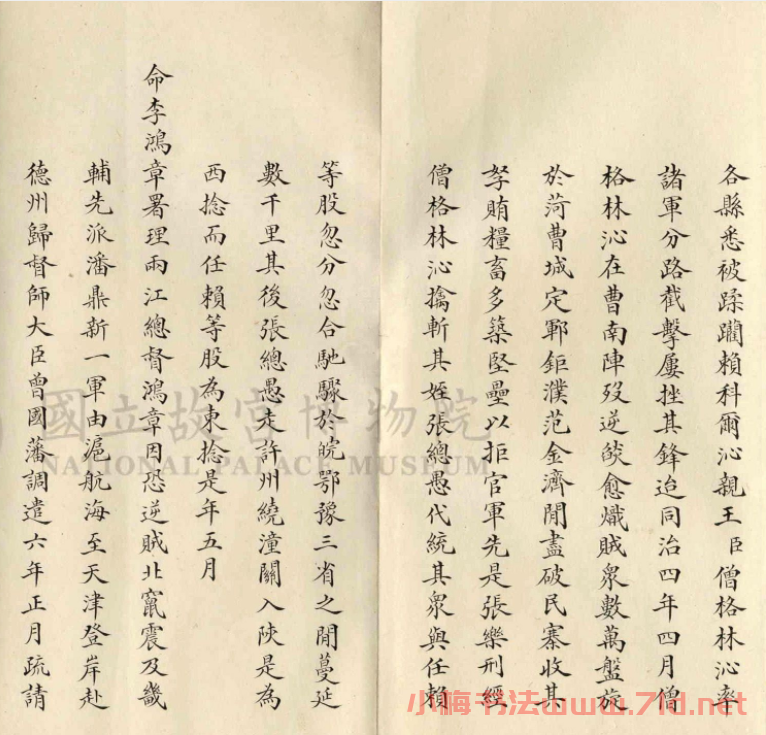 各縣悉被蹂躪賴科爾沁親王臣僧格林沁率
諸軍分路截擊屢挫其鋒迨同治四年四月僧
格林沁在曹南陣歿逆燄愈熾賊衆數萬盤旋
於菏曹城定鄆鉅濮范金濟閒盡破民寨收其
孥賄糧畜多築堅壘以拒官軍先是張樂刑經
僧格林沁擒斬其姪張總愚代統其衆與任賴
等股忽分忽合馳驟於皖鄂豫三省之閒蔓延
數千里其後張總愚走許州繞潼關入陝是為
西捻而任賴等股為東捻是年五月
命李鴻章署理兩江總督鴻章因恐逆賊北竄震及畿
輔先派潘鼎新一軍由滬航海至天津登岸赴
德州歸督師大臣曾國藩調遣六年正月疏請
國立故宮博物院
NATIONAL PALACE MUSEUM
小梅书法www.71d.net